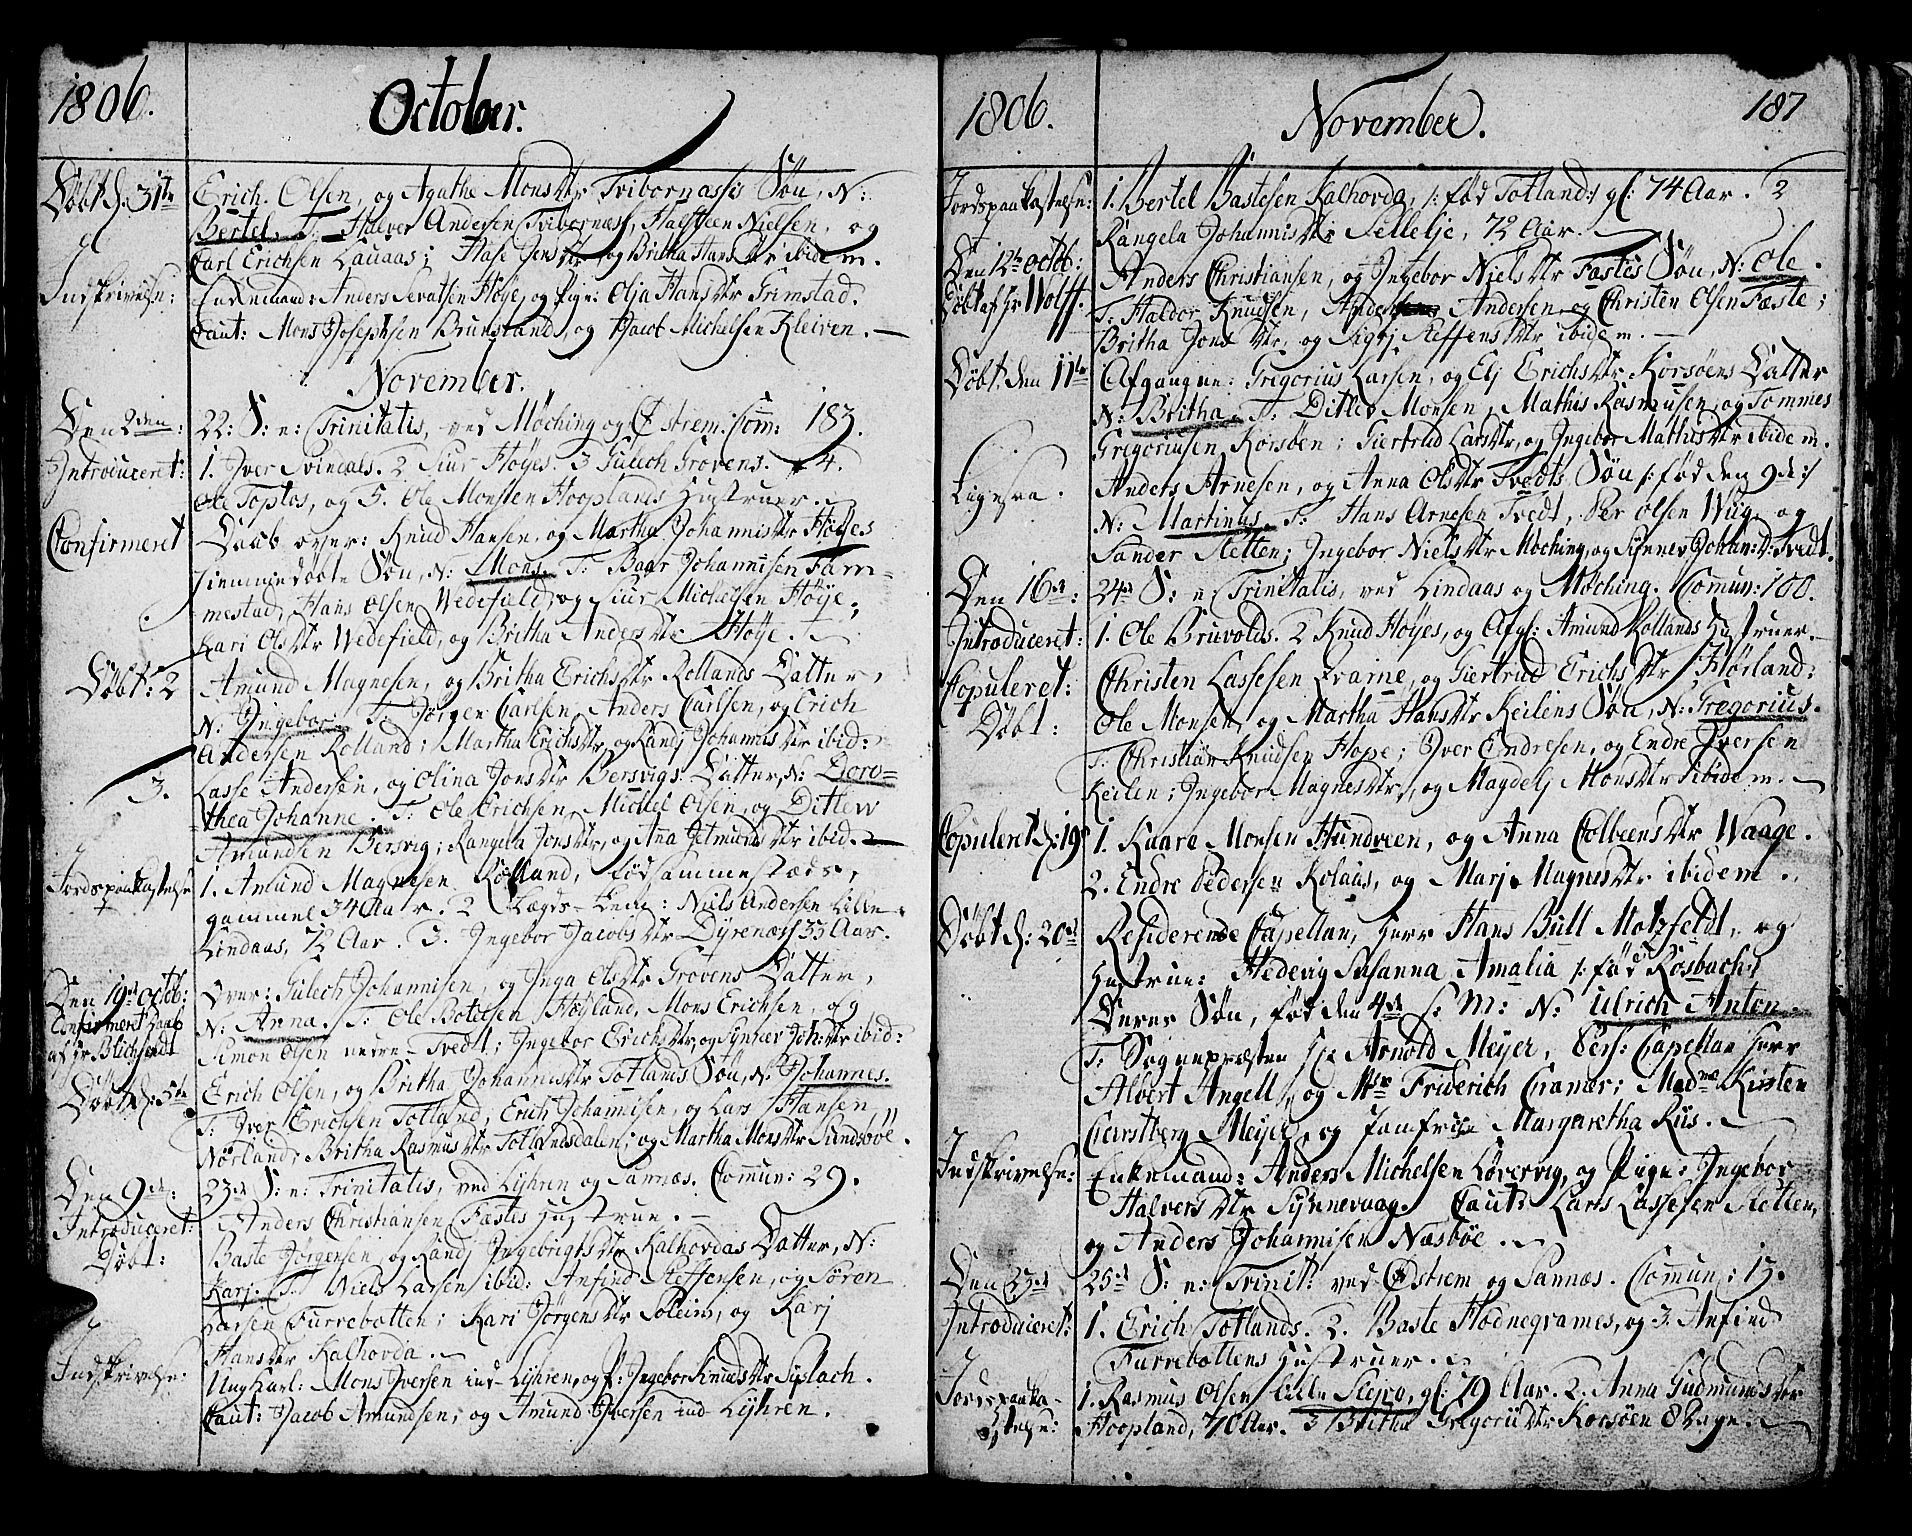 1806.
October.
Døbt d: 31te
Erich Olsen, og Agathe Monsdtr Tvibornæssis Søn, N:
Bertel. T: Halver Andersen Tvibornæss, Halsteen Nielsen, og
Carl Erichsen Lauaas; Jensdtr og Britha Hansdtr ibidem.
Indskrivelse:
Enkemand: Anders Høye, og Pige: Olja Hansdtr Grimstad.
Caut: Mons Josephsen Brunstand, og Jacob Michelsen Kleiven.
November.
Den 2den:
22: S: n: Trinitatis, ved Møching og Østrem: Com: 183.
Introduceret:
1. Iver Svindals. 2 Siur Høyes. 3 Gulech Grovens. 4.
Ole Toptos, og 5. Ole Monsten Hooplands Hustruer.
Confirmeret
Daab over: Knud Hansen, og Martha Johannisdtr Høyes
hiemmedøbte Søn, N: Mons. T: Baar Johannisen Fam-
mestad, Hans Olsen Wedefield, og Siur Michelsen Høye;
Kari Olsdtr Wedefield, og Britha Andersdtr Høye.
Døbt: 2
Amund Magnesen, og Britha Erichsdtr Rollands Datter,
N: Ingebor. T: Jørgen Carlsen, Anders Carlsen, og Erich
Andersen Rolland; Martha Erichsdtr, og Randj Johannisdtr ibid:
3.
Lasse Andersen, og Olina Jonsdtr Bersvigs Datter, N: Doro-
thea Johanne. T: Ole Erichsen, Michel Olsen, og Ditlew
Amundsen Bersvig; Rangela Jonsdtr, og Ana Jetmundsdtr ibid.
Jordspaakastelse
1. Amund Magnesen Rolland, fød sammestæds,
gammel 34 Aar. 2 Lægds-Lem: Niels Andersen Lille
Lindaas, 72 Aar. 3. Ingebor Jacobsdtr Dyrenæss 33 Aar.
Den 19de Octob:
Confirmeret Daab
af Hr Blichfeldt
Over: Gulech Johannisen, og Inga Olsdtr Grovens Datter,
N: Anna. T: Ole Botelsen Høyland, Mons Erichsen, og
Simon Olsen nedre-Tvedt; Ingebor Erichsdtr, og Synnev Joh:dtr ibid:
Døbt d: 5te
Erich Olsen, og Britha Johannisdtr Totlands Søn, N: Johannes.
T: Iver Erichsen Totland; Erich Johannisen, og Lars Hansen
Nørland; Britha Rasmusdtr Totlandsdalen, og Martha Monsdtr Sundsbøe.
Den 9de:
23de S: n: Trinitatis, ved Lyhren og Sannæs. Commun: 29.
Introduceret:
Anders Christiansen Fæstes Hustrue.
Døbt:
Baste Jørgensen, og Randj Ingebrigtsdtr Kalhovdas Datter, N:
Karj. T: Niels Larsen ibid: Anfind Steffensen, og Søren
Larsen Furrebotten; Kari Jørgensdtr Solein, og Karj
Hansdtr Kalhovda.
Indskrivelse:
Ung Karl: Mons Iversen ind-Lyhren, og P: Ingebor Knudsdtr Syslach.
Caut: Jacob Amundsen, og Amund Iversen ind-Lyhren.
1806.
November.
187
Jordspaakastelse:
1. Bertel Bastesen Kalhovda, /: fød Totland:/ gl: 74 Aar. 2
Rangela Johannisdtr Sellelje, 72 Aar.
Den 12te Octob:
Døbt af Hr Wolff.
Anders Christiansen, og Ingebor Nielsdtr Fæstes Søn, N: Ole.
T: Haldor Knudsen, Anders Andersen og Christen Olsen Fæste;
Britha Jonsdtr, og Sigrj Steffensdtr ibidem.
Døbt den 11te
Afgangne: Gregorius Larsen, og Elj Erichsdtr Korsøens Datter
N: Britha. T: Ditlev Monsen, Mathis Rasmusen, og Tommes
Gregoriusen Korsøen; Giertrud Larsdtr, og Ingebor Mathisdtr ibidem.
Ligesaa.
Anders Arnesen, og Anna Olsdtr Tvedts Søn /: fød den 9de:/
N: Martinus. T: Hans Arnesen Tvedt, Per Olsen Wiig, og
Sander Sletten; Ingebor Nielsdtr Møching, og Sinnev Johan:d: Tvedt.
Den 16de:
24de S: n: Trinitatis, ved Lindaas og Møching. Comun: 100.
Introduceret:
1. Ole Bruvolds. 2 Knud Høyes, og Afg: Amund Rollands Hustruer.
Copuleret:
Christen Lassesen Evarne, og Giertrud Erichsdtr Hørland:
Døbt:
Ole Monsen, og Martha Hansdtr Keilens Søn, N: Gregorius.
T: Christian Knudsen Hope; Iver Endresen, og Endre Iversen
Keilen; Ingebor Magnesdtr, og Magdelj Monsdtr ibidem.
Copuleret d: 19de
1. Kaare Monsen Hundveen, og Anna Colbeensdtr Waage.
2. Endre Pedersen Kolaas, og Marj Magnesdtr ibidem.
Døbt d: 20de
Residerende Capellan, Herr Hans Bull Motzfeldt, og
Hustrue: Hedevig Susanna Amalia /: fød Rosbach:/
Deres Søn, fød den 4de s: M: N: Ulrich Anton.
T: Sognepræsten Hr Arnold Meyer, Pers: Capellan Herr
Albert Angell, og Msr Friderich Cramer; Madme Kirsten
Gerstberg Meyer, og Jomfrue Margaretha Riis.
Indskrivelse:
Enkemand: Anders Michelsen Løvervig, og Pige: Ingebor
Halversdtr Synnevaag. Caut: Lars Lassesen Sletten,
og Anders Johannisen Næsbøe.
Den 23de
25de S: n: Trinit: ved Østrem og Sannæs. Comun: 13.
Introduceret:
1. Erich Totlands. 2. Baste Hodnegrames, og 3. Anfind
Furrebottens Hustruer.
Jordspaaka-
stelse:
1. Rasmus Olsen Lille Sleiro, gl: 79 Aar. 2. Anna Gudmundsdtr
Hoopland, 70 Aar. 3 Britha Gregoriidtr Korsøen 8 Dage.